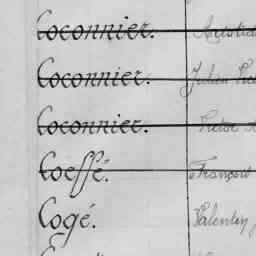 Coconnier.
Coconnier. Julien
Coconnier. Victor
Coëffé. François
Cogé. Valentin